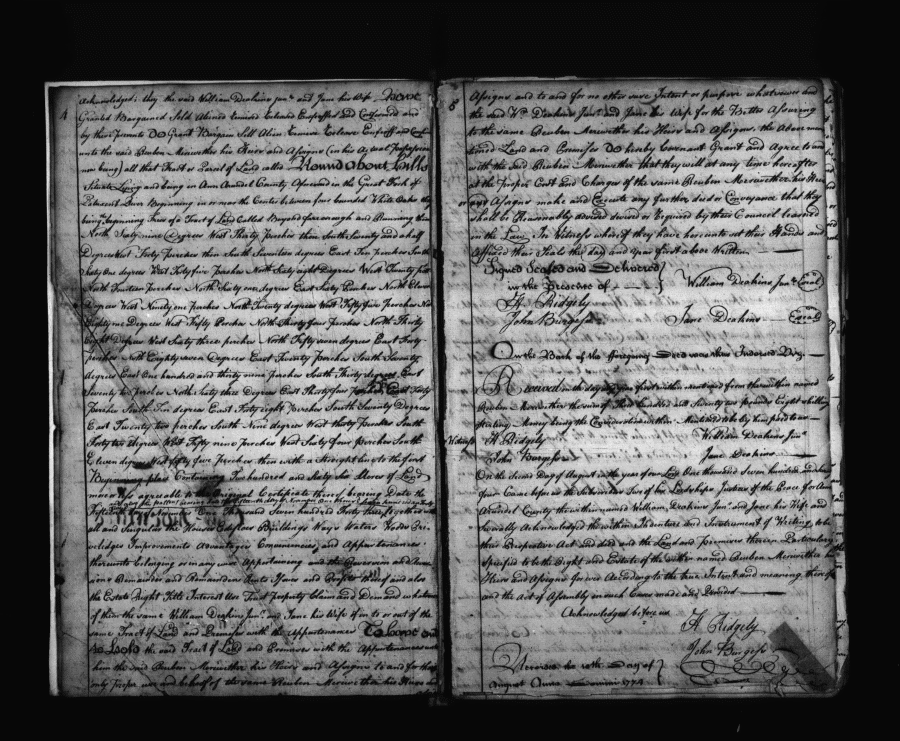 Acknowledged; they the said William Deakins junr and Jane his Wife Have
4
Granted Bargained Sold Aliened Enfeoffed and Confirmed and
by these presents Do Grant Bargain Sell Alien Enfeoff and Confirm
unto the said Reuben Meriwether his Heirs and Assigns (in his Actual Possession
now being) all that Tract or Parcel of Land called Round About Hills
Situate Lying and being in Ann Arundel County Aforesaid in the Great Fork of
Patuxent River Beginning in or near the Center between four bounded White Oaks the
being the beginning Trees of a Tract of Land Called and Running then
North Sixty nine Degrees West Thirty Perches then South Seventy and a half
Degrees West Forty perches then South Seventeen degrees East Ten perches South
Sixty one degrees West Forty five perches North Sixty eight Degrees West Twenty
North Fourteen Perches North Sixty one degrees East Sixty Perches North Eleven
Degrees West Ninety one perches North Twenty degrees West Fifty five Perches No
Eighty one Degrees West Fifty Perches North Thirty four perches North Thirty
Eight Degrees West Sixty three perches North Fifty seven degrees East Forty
perches North Eighty seven Degrees East Twenty Perches South Seventy
degrees East One hundred and thirty nine perches South Thirty degrees East
Seventy two perches North Sixty three Degrees East Thirty four East Forty
perches South Ten degrees East Forty eight perches South Seventy Degrees
East Twenty two perches South Nine degrees West thirty Perches South
Forty two degrees West Fifty nine perches West Sixty four perches South
Eleven degrees West Sixty five Perches then with a Straight line to the first
Beginning place Containing Two hundred and Sixty Six Acres of Land
more or less agreeable to the Original Certificate thereof bearing Date the
One Thousand Seven hundred Forty three together with
all and Singular the Houses Edifices Buildings Ways Waters Woods Pri
veledges Improvements Advantages Emmences and Appurtenances
thereunto belonging or in any wise Appertaining and the Reversion and Rever
sions Remainder and Remainders Rents Issues and Profits thereof and also
the Estate Right Title Interest Use Trust property Claim and Demand whatsoever
of them the same William Deakins Junr and Jane his Wife of in to or out of the
same Tract of Land and Premises with the Appurtenances To have and
to hold the said Tract of Land and Premises with the Appurtenances unto
him the said Reuben Meriwether his Heirs and Assigns to and for the
only proper use and behoof of the same Reuben Meriwether his Heirs and
Assigns and to and for no other use Intent or purpose whatsoever and
5
the said Wm Deakins Junr and Jane his Wife for the Better Assureing
to the same Reuben Meriwether his Heirs and Assigns the Above men
tioned Land and Premises Do hereby Covenant Grant and Agree to and
with the said Reuben Meriwether that they will at any time hereafter
at the proper Cost and Charges of the same Reuben Meriwether his Heirs
or Assigns make and Execute any further deed or Conveyance that they
shall be Reasonably advised devised or Required by their Council learned
in the Law In Witness whereof they have hereunto set their Hands and
Affixed their Seals this day and year first above Written
Signed Sealed and Delivered
in the Presence of
William Deakins Junr (Seal)
H. Ridgely
John Burgess
Jane Deakins (Seal)
On the Back of the foregoing Deed was thus Indorsed Viz.
Received on the day and year first within mentioned from the within named
Reuben Meriwether the sum of Three hundred and Seventy two pounds Eight shillings
Sterling Money being the Consideration within Mentioned to be by him paid to us
Witness H. Ridgely
William Deakins Junr
John Burgess
Jane Deakins
On the Second day of August in the year of our Lord One thousand Seven hundred and
four Came before us the Subscribers Two of his Lordships Justices of the Peace for Ann
Arundel County the within named William Deakins Junr and Jane his Wife and
severally Acknowledged the within Indenture and Instrument of Writing to be
their Respective Act and deed and the Land and Premises therein Particularly
Specified to be the Right and Estate of the within named Reuben Meriwether his
Heirs and Assigns for ever According to the true Intent and meaning thereof
and the Act of Assembly in such Cases made and Provided
Acknowledged before us
H. Ridgely
John Burgess
Recorded the 10th Day of
August Anno Domini 1774